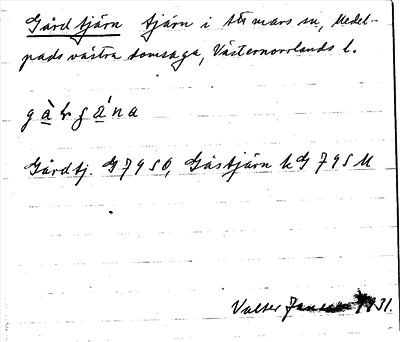 Gårdtjärn tjärn i Attmars sn, Medel-
pads västra domsaga, Västernorrlands l.
Gårdtj. G 795 Ö, Gåstjärn k G 795 M
Valter 1931.